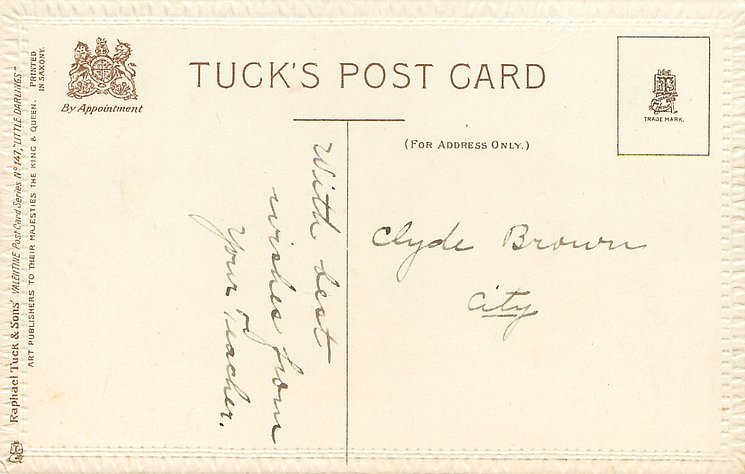 TUCK'S POST CARD
By Appointment
(FOR ADDRESS ONLY.)
TRADE MARK.
With best
wishes from
Your Teacher.
Clyde Brown
City
Raphael Tuck & Sons' VALENTINE Post Card Series No 147, "LITTLE DARLINGS."
ART PUBLISHERS TO THEIR MAJESTIES THE KING & QUEEN.
PRINTED
IN SAXONY.